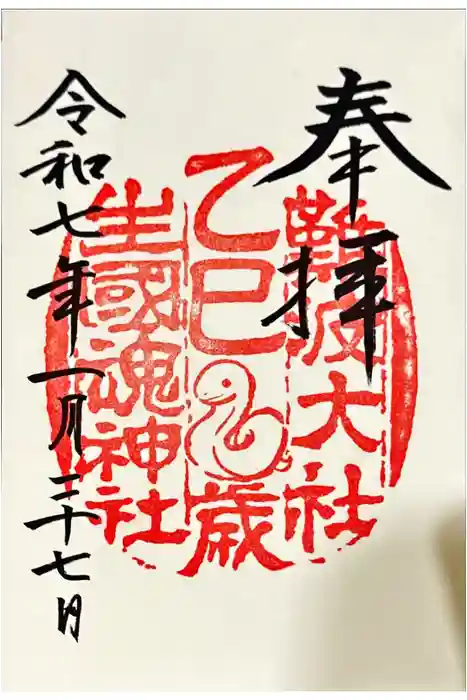 奉拝
難波大社
乙巳歳
生國魂神社
令和七年一月二十七日